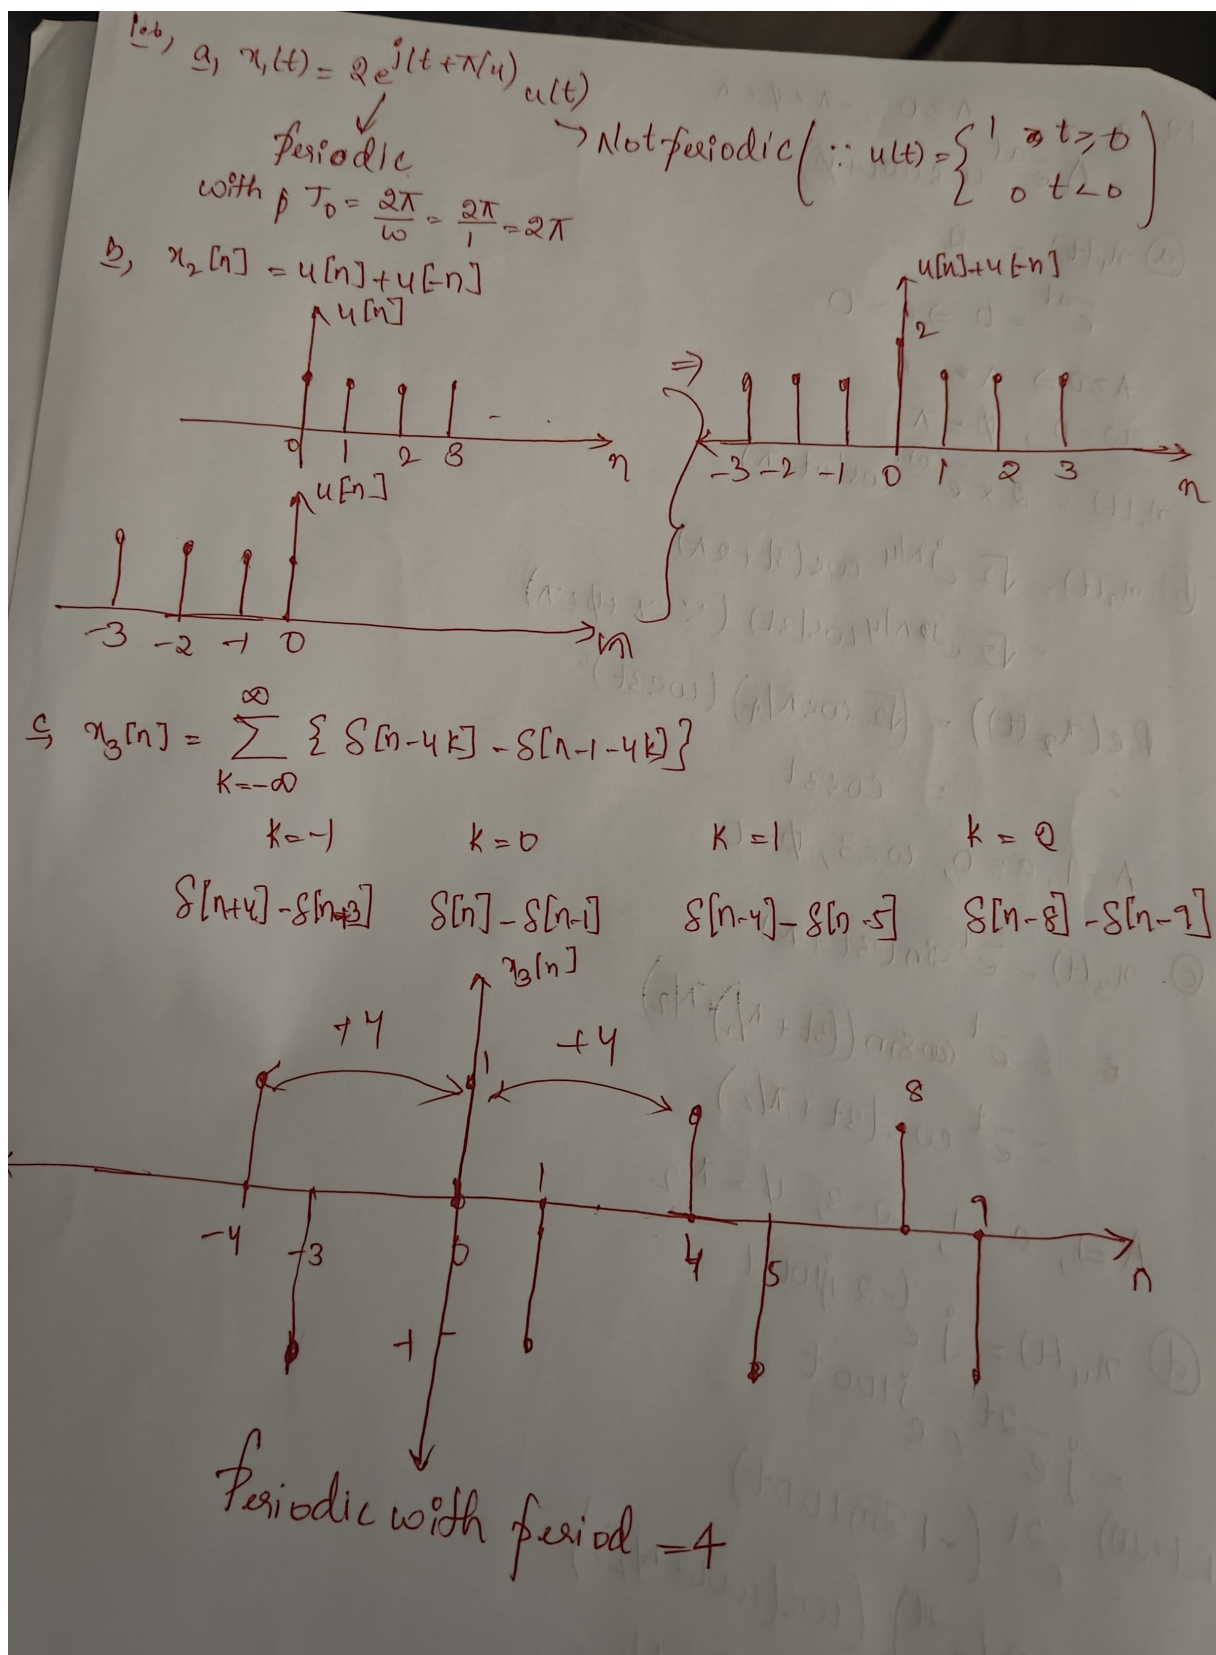 a, x₁(t) = 2e^{j(t+π/4)} u(t)
Periodic
→ Not periodic (∵ u(t) = { 1 t≥0
0 t<0 )
with T₀ = 2π/ω = 2π/1 = 2π
b, x₂[n] = u[n]+u[-n]
u[n]
0 1 2 3 - . n
u[-n]
-3 -2 -1 0 n
⇒ u[n]+u[-n]
2
-3 -2 -1 0 1 2 3 n
c, x₃[n] = ∑_{k=-∞}^{∞} { δ[n-4k] - δ[n-1-4k] }
k=-1 k=0 k=1 k=2
δ[n+4]-δ[n+3] δ[n]-δ[n-1] δ[n-4]-δ[n-5] δ[n-8]-δ[n-9]
x₃[n]
+4 +4
1 8
1 9
-4 -3 0 4 5 n
-1
Periodic with period = 4